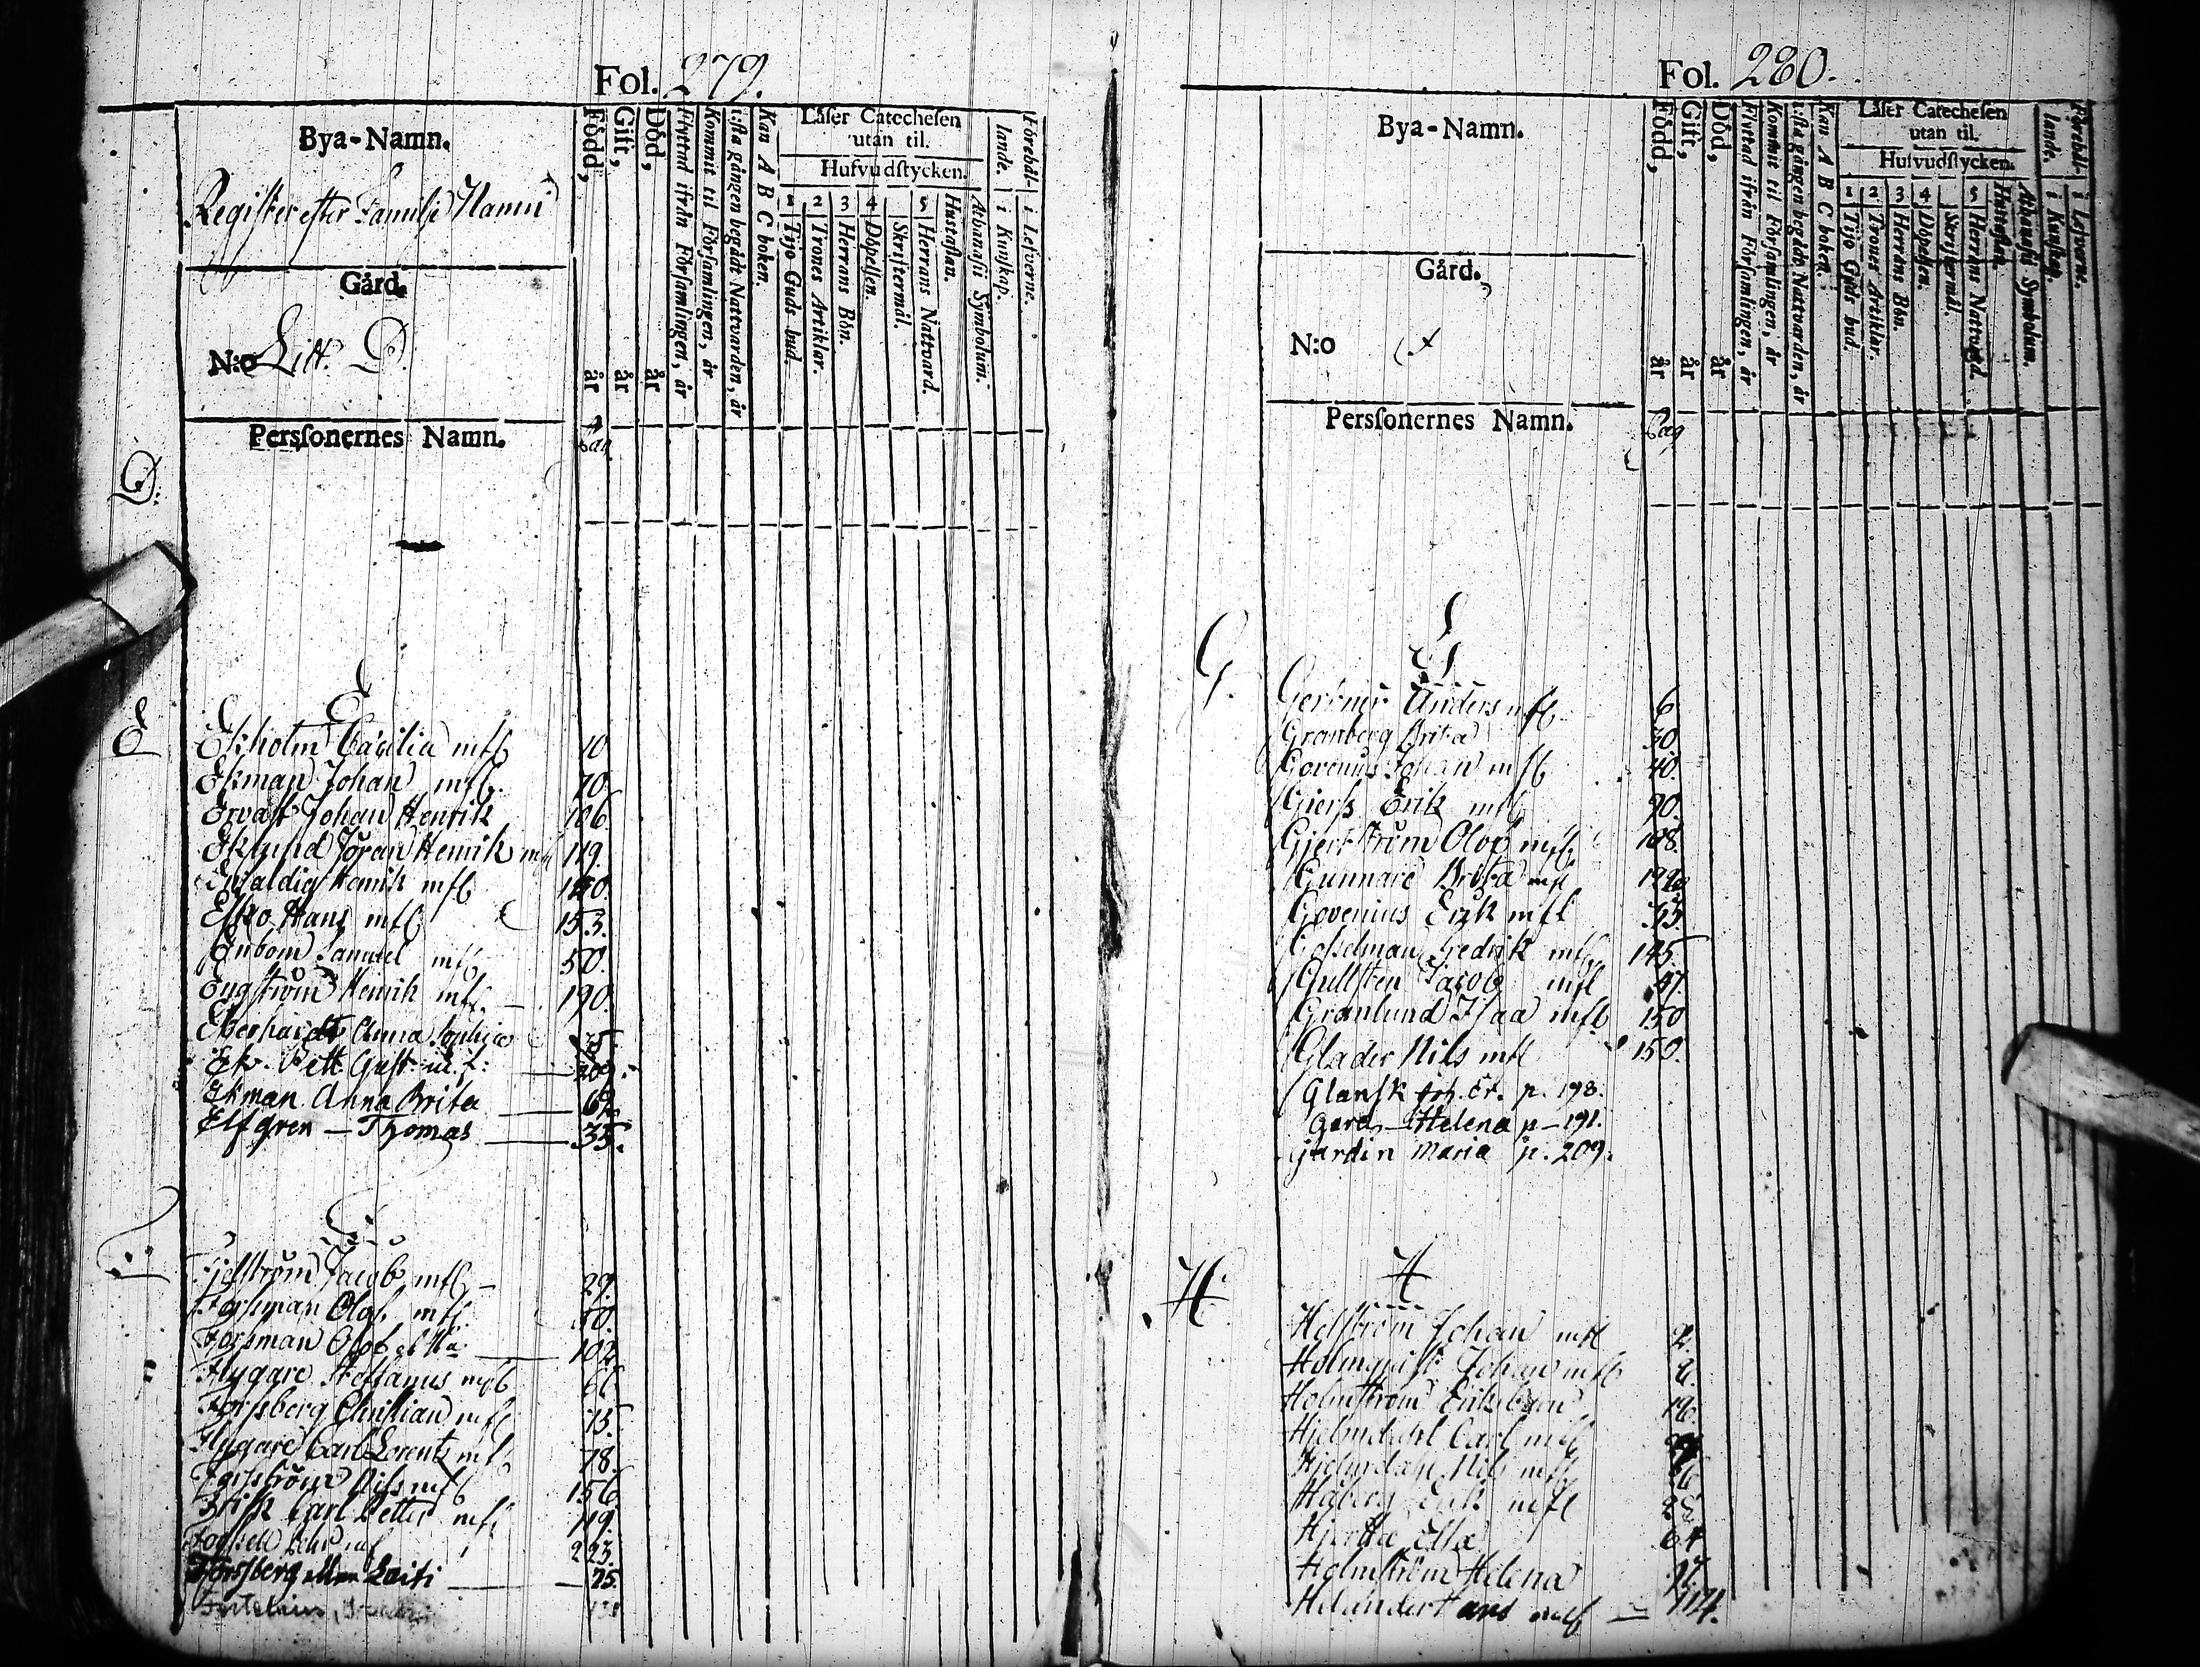 Fol. 279.
Bya-Namn.
Register efter Familje Namn
Gård.
N:o Litt. D.
Persſonernes Namn.
Född, år
Gift, år
Död, år
Flyttad ifrån Förſamlingen, år
Kommit til Förſamlingen, år
1:ſta gången begådt Nattvarden, år
Kan A B C boken.
Läſer Catecheſen utan til.
Hufvudſtycken.
1 Tijo Guds bud.
2 Trones Artiklar.
3 Herrans Bön.
4 Döpelſen.
Skriftermål.
5 Herrans Nattvard.
Huſtaflan.
Athanaſii Symbolum.
Förehållande. i Kunſkap.
i Lefverne.
Pag.
D.
E
E
Ekholm Cæcilia mfl 10
Ekman Johan mfl. 70.
Ervast Johan Henrik 106.
Eklund Göran Henrik mfl 119.
Henrik mfl
Esko Hans mfl 153.
Enbom Samuel mfl 50.
Engström Henrik mfl 190.
Eberhardt Anna Sophia 35
Ek. Pett. Gust. m.f. 209.
Ekman Anna Brita 69
Elfgren - Thomas 35.
F
Fjelström Jacob mfl 29.
Forsman Olof mfl. 50.
Forsman Olof 102
Flygare Steffanus mfl
Forsberg Christian mfl 75.
Flygare Carl Lorents mfl 78.
Forsström Nils mfl 156
Frisk Carl Petter mfl 119.
223.
Forsberg eller Laiti 75.
Fol. 280.
Bya-Namn.
Gård.
N:o
Persſonernes Namn.
Född, år
Gift, år
Död, år
Flyttad ifrån Förſamlingen, år
Kommit til Förſamlingen, år
1:ſta gången begådt Nattvarden, år
Kan A B C boken.
Läſer Catecheſen utan til.
Hufvudſtycken.
1 Tijo Guds bud.
2 Trones Artiklar.
3 Herrans Bön.
4 Döpelſen.
Skriftermål.
5 Herrans Nattvard.
Huſtaflan.
Athanaſii Symbolum.
Förehållande. i Kunſkap.
i Lefverne.
Pag
G.
G
Anders mfl 6
Granberg Brita 30.
Govenius Johan mfl 40.
Gierss Erik mfl 90.
Gjertström Olof mfl 108.
Gunnare Brita mfl
Govenius Erik mfl 33.
Gosselman Fredrik mfl 145
Gullsten Jacob mfl
Granlund Isaa mfl 150
Glader Nils mfl 150.
Glansk Joh. Er. p. 198.
Gard - Helena p - 191.
Jardin Maria p. 209.
H.
H
Helström Johan mfl 2.
Holmquist Johan mfl
Holmström Erik
Hjelmdahl Carl mfl
Hjelmdahl Nils mfl
Håberg Erik mfl
Hjerta Ella 64
Holmström Helena
Helander Hans mfl 114.